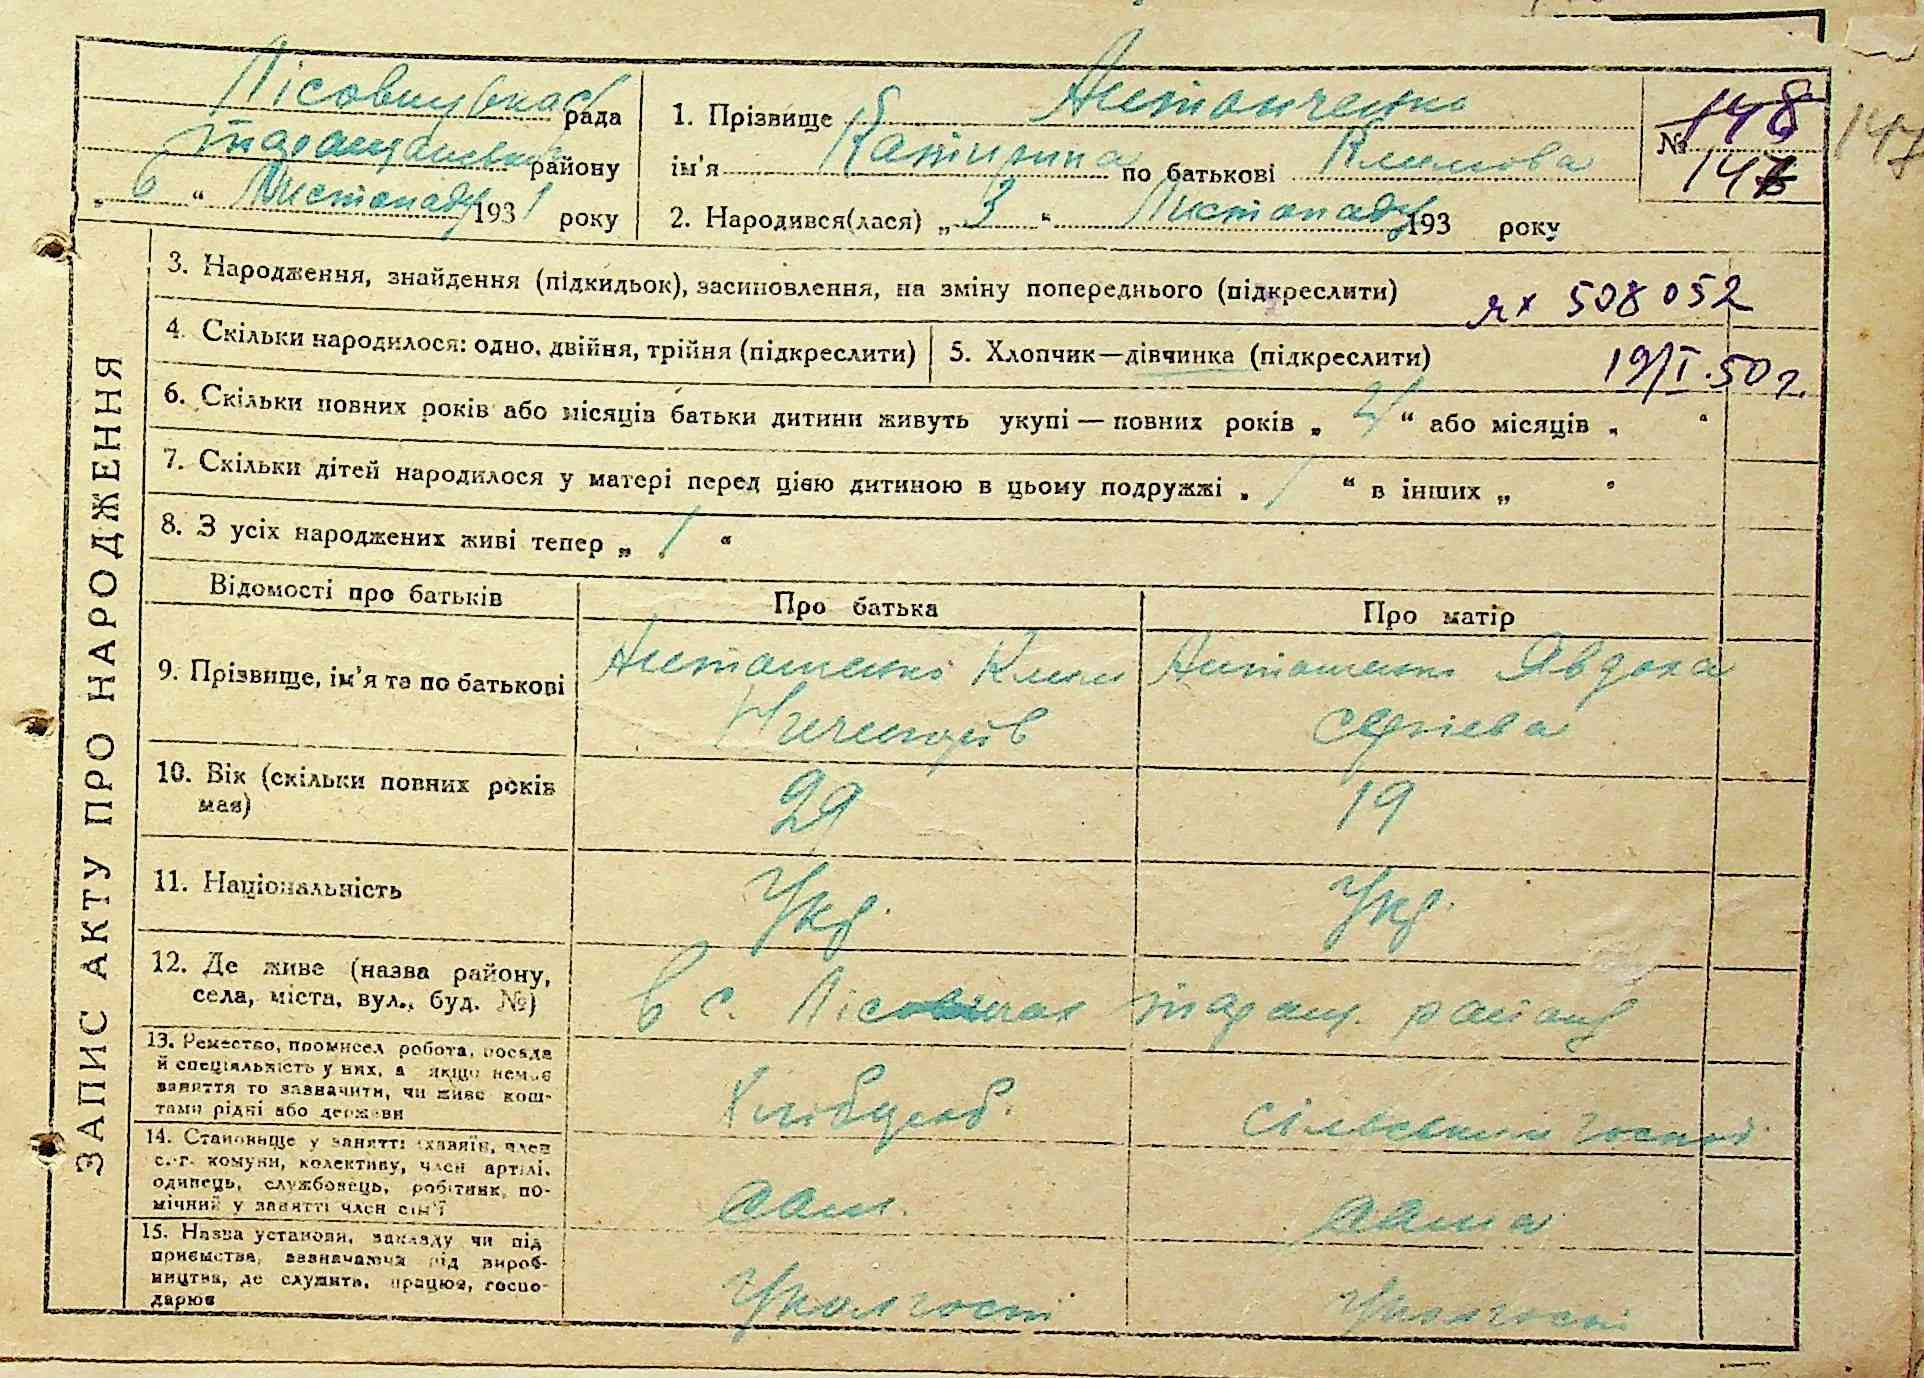 ЗАПИС АКТУ ПРО НАРОДЖЕННЯ
рада
району
„ 6 “ Листопаду 1931 року
1. Прізвище Антонченко
ім'я Катирина по батькові Климова
2. Народився(лася) „ 3 “ Листопаду 193 року
№ 148
147
147
3. Народження, знайдення (підкидьок), засиновлення, на зміну попереднього (підкреслити)
508052
4. Скільки народилося: одно, двійня, трійня (підкреслити)
5. Хлопчик—дівчинка (підкреслити)
19/I.50 г.
6. Скільки повних років або місяців батьки дитини живуть укупі — повних років „ “ або місяців „ “
7. Скільки дітей народилося у матері перед цією дитиною в цьому подружжі „ 1 “ в інших „ “
8. З усіх народжених живі тепер „ 1 “
Відомості про батьків
Про батька
Про матір
9. Прізвище, ім'я та по батькові
Клим
Явдоха
10. Вік (скільки повних років має)
29
19
11. Національність
Укр.
Укр.
12. Де живе (назва району, села, міста, вул., буд. №)
в с. Лісовичах таращ. району
13. Ремество, промисел робота, посада й спеціяльність у них, а якщо немає заняття то зазначити, чи живе коштами рідні або держави
Хлібороб.
Сільський господ.
14. Становище у занятті (хазяїн, член с.-г. комуни, колективу, член артілі, одинець, службовець, робітник, помічний у занятті член сім'ї
сам.
сама
15. Назва установи, закладу чи підприємства, зазначаючи рід виробництва, де служить, працює, господарює